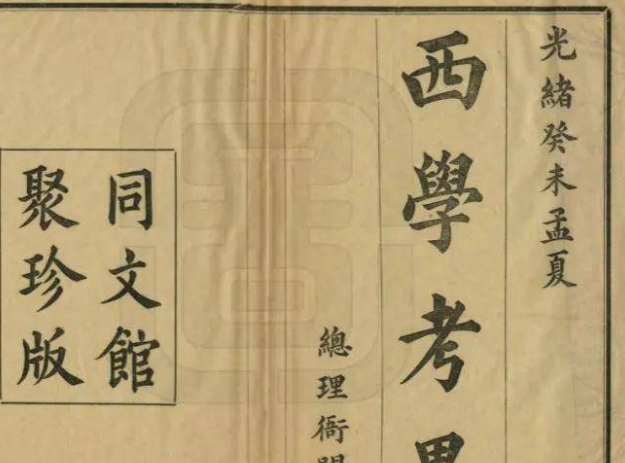 光緒癸未孟夏
西學考
總理衙
同文館
聚珍版